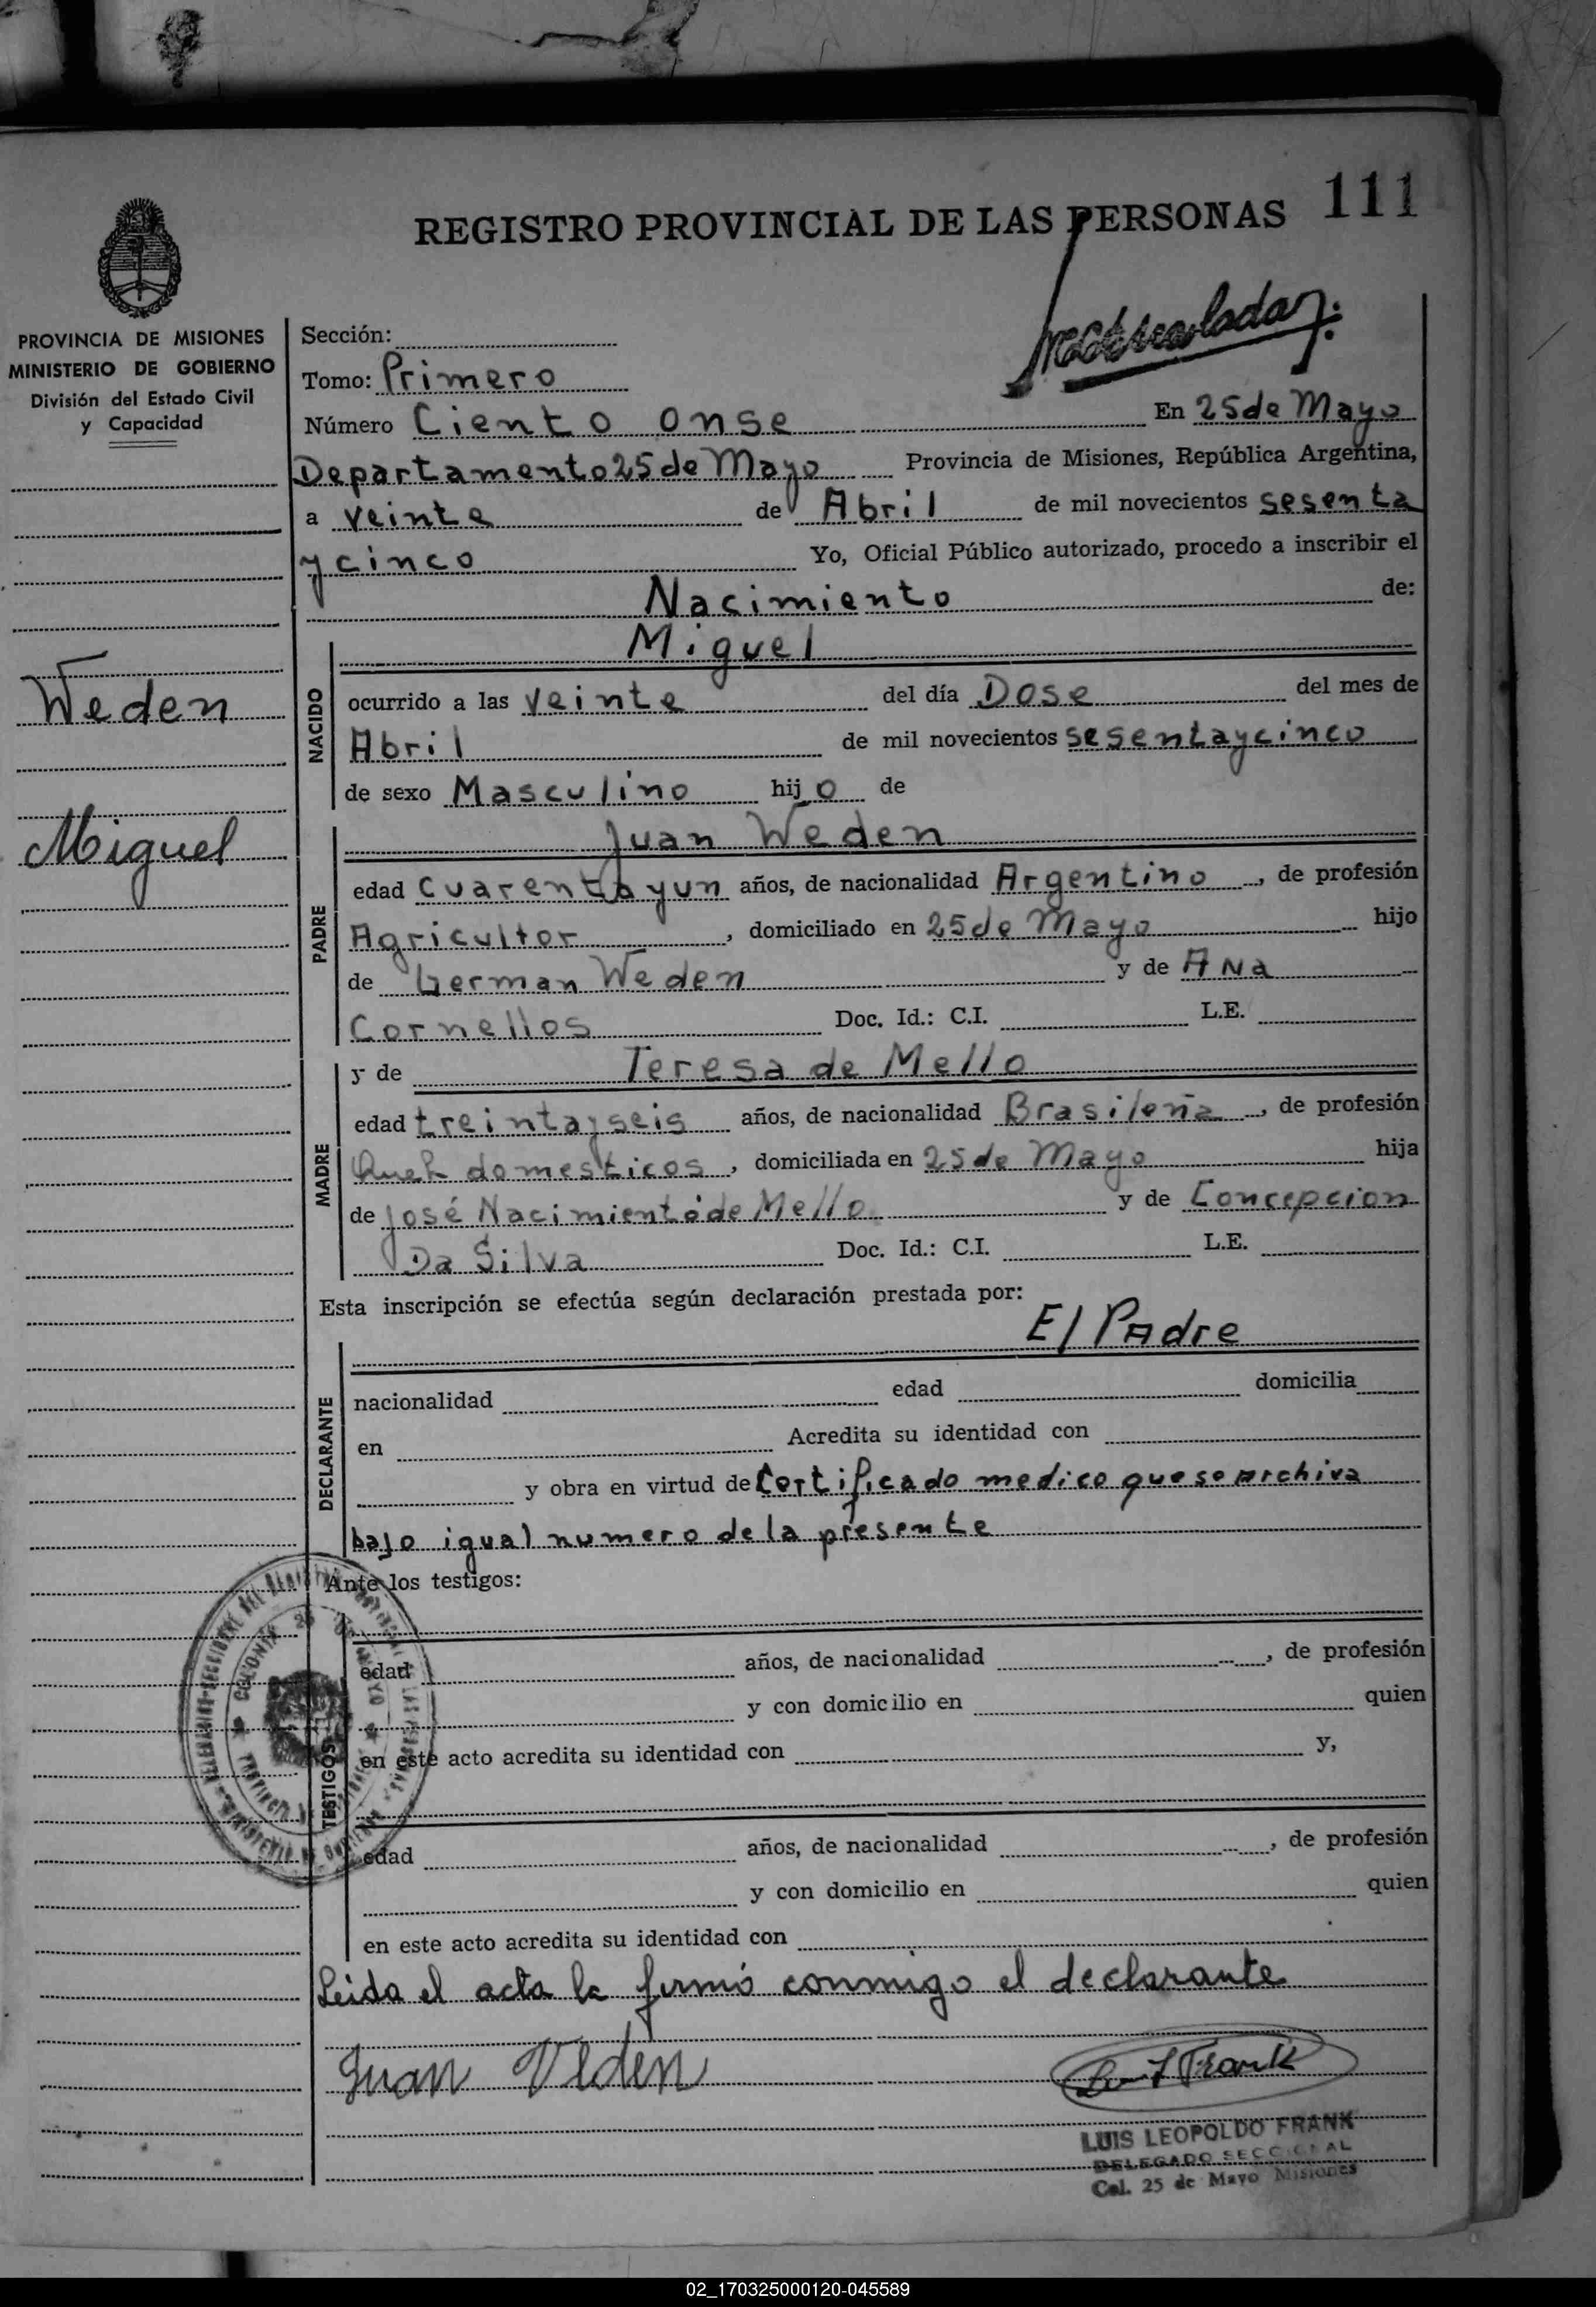 111
REGISTRO PROVINCIAL DE LAS PERSONAS
PROVINCIA DE MISIONES
MINISTERIO DE GOBIERNO
División del Estado Civil
y Capacidad
Weden
Miguel
Sección:
Tomo: Primero
Número Ciento onse En 25 de Mayo
Departamento 25 de Mayo Provincia de Misiones, República Argentina,
a veinte de Abril de mil novecientos sesenta
y cinco Yo, Oficial Público autorizado, procedo a inscribir el
Nacimiento de:
Miguel
NACIDO
ocurrido a las veinte del día Dose del mes de
Abril de mil novecientos sesentaycinco
de sexo Masculino hijo de
Juan Weden
PADRE
edad cuarentayun años, de nacionalidad Argentino, de profesión
Agricultor, domiciliado en 25 de Mayo hijo
de German Weden y de Ana
Cornellos Doc. Id.: C.I. L.E.
MADRE
y de Teresa de Mello
edad treintayseis años, de nacionalidad Brasileña, de profesión
domesticos, domiciliada en 25 de Mayo hija
de José Nacimiento de Mello y de Concepcion
Da Silva Doc. Id.: C.I. L.E.
Esta inscripción se efectúa según declaración prestada por:
El Padre
DECLARANTE
nacionalidad edad domicilia
en Acredita su identidad con
y obra en virtud de Certificado medico que se archiva
bajo igual numero de la presente
Ante los testigos:
TESTIGOS
edad años, de nacionalidad , de profesión
y con domicilio en quien
en este acto acredita su identidad con y,
edad años, de nacionalidad , de profesión
y con domicilio en quien
en este acto acredita su identidad con
Leida el acta la firmó conmigo el declarante
Juan Veden
LUIS LEOPOLDO FRANK
DELEGADO SECCIONAL
Col. 25 de Mayo Misiones
02_170325000120-045589